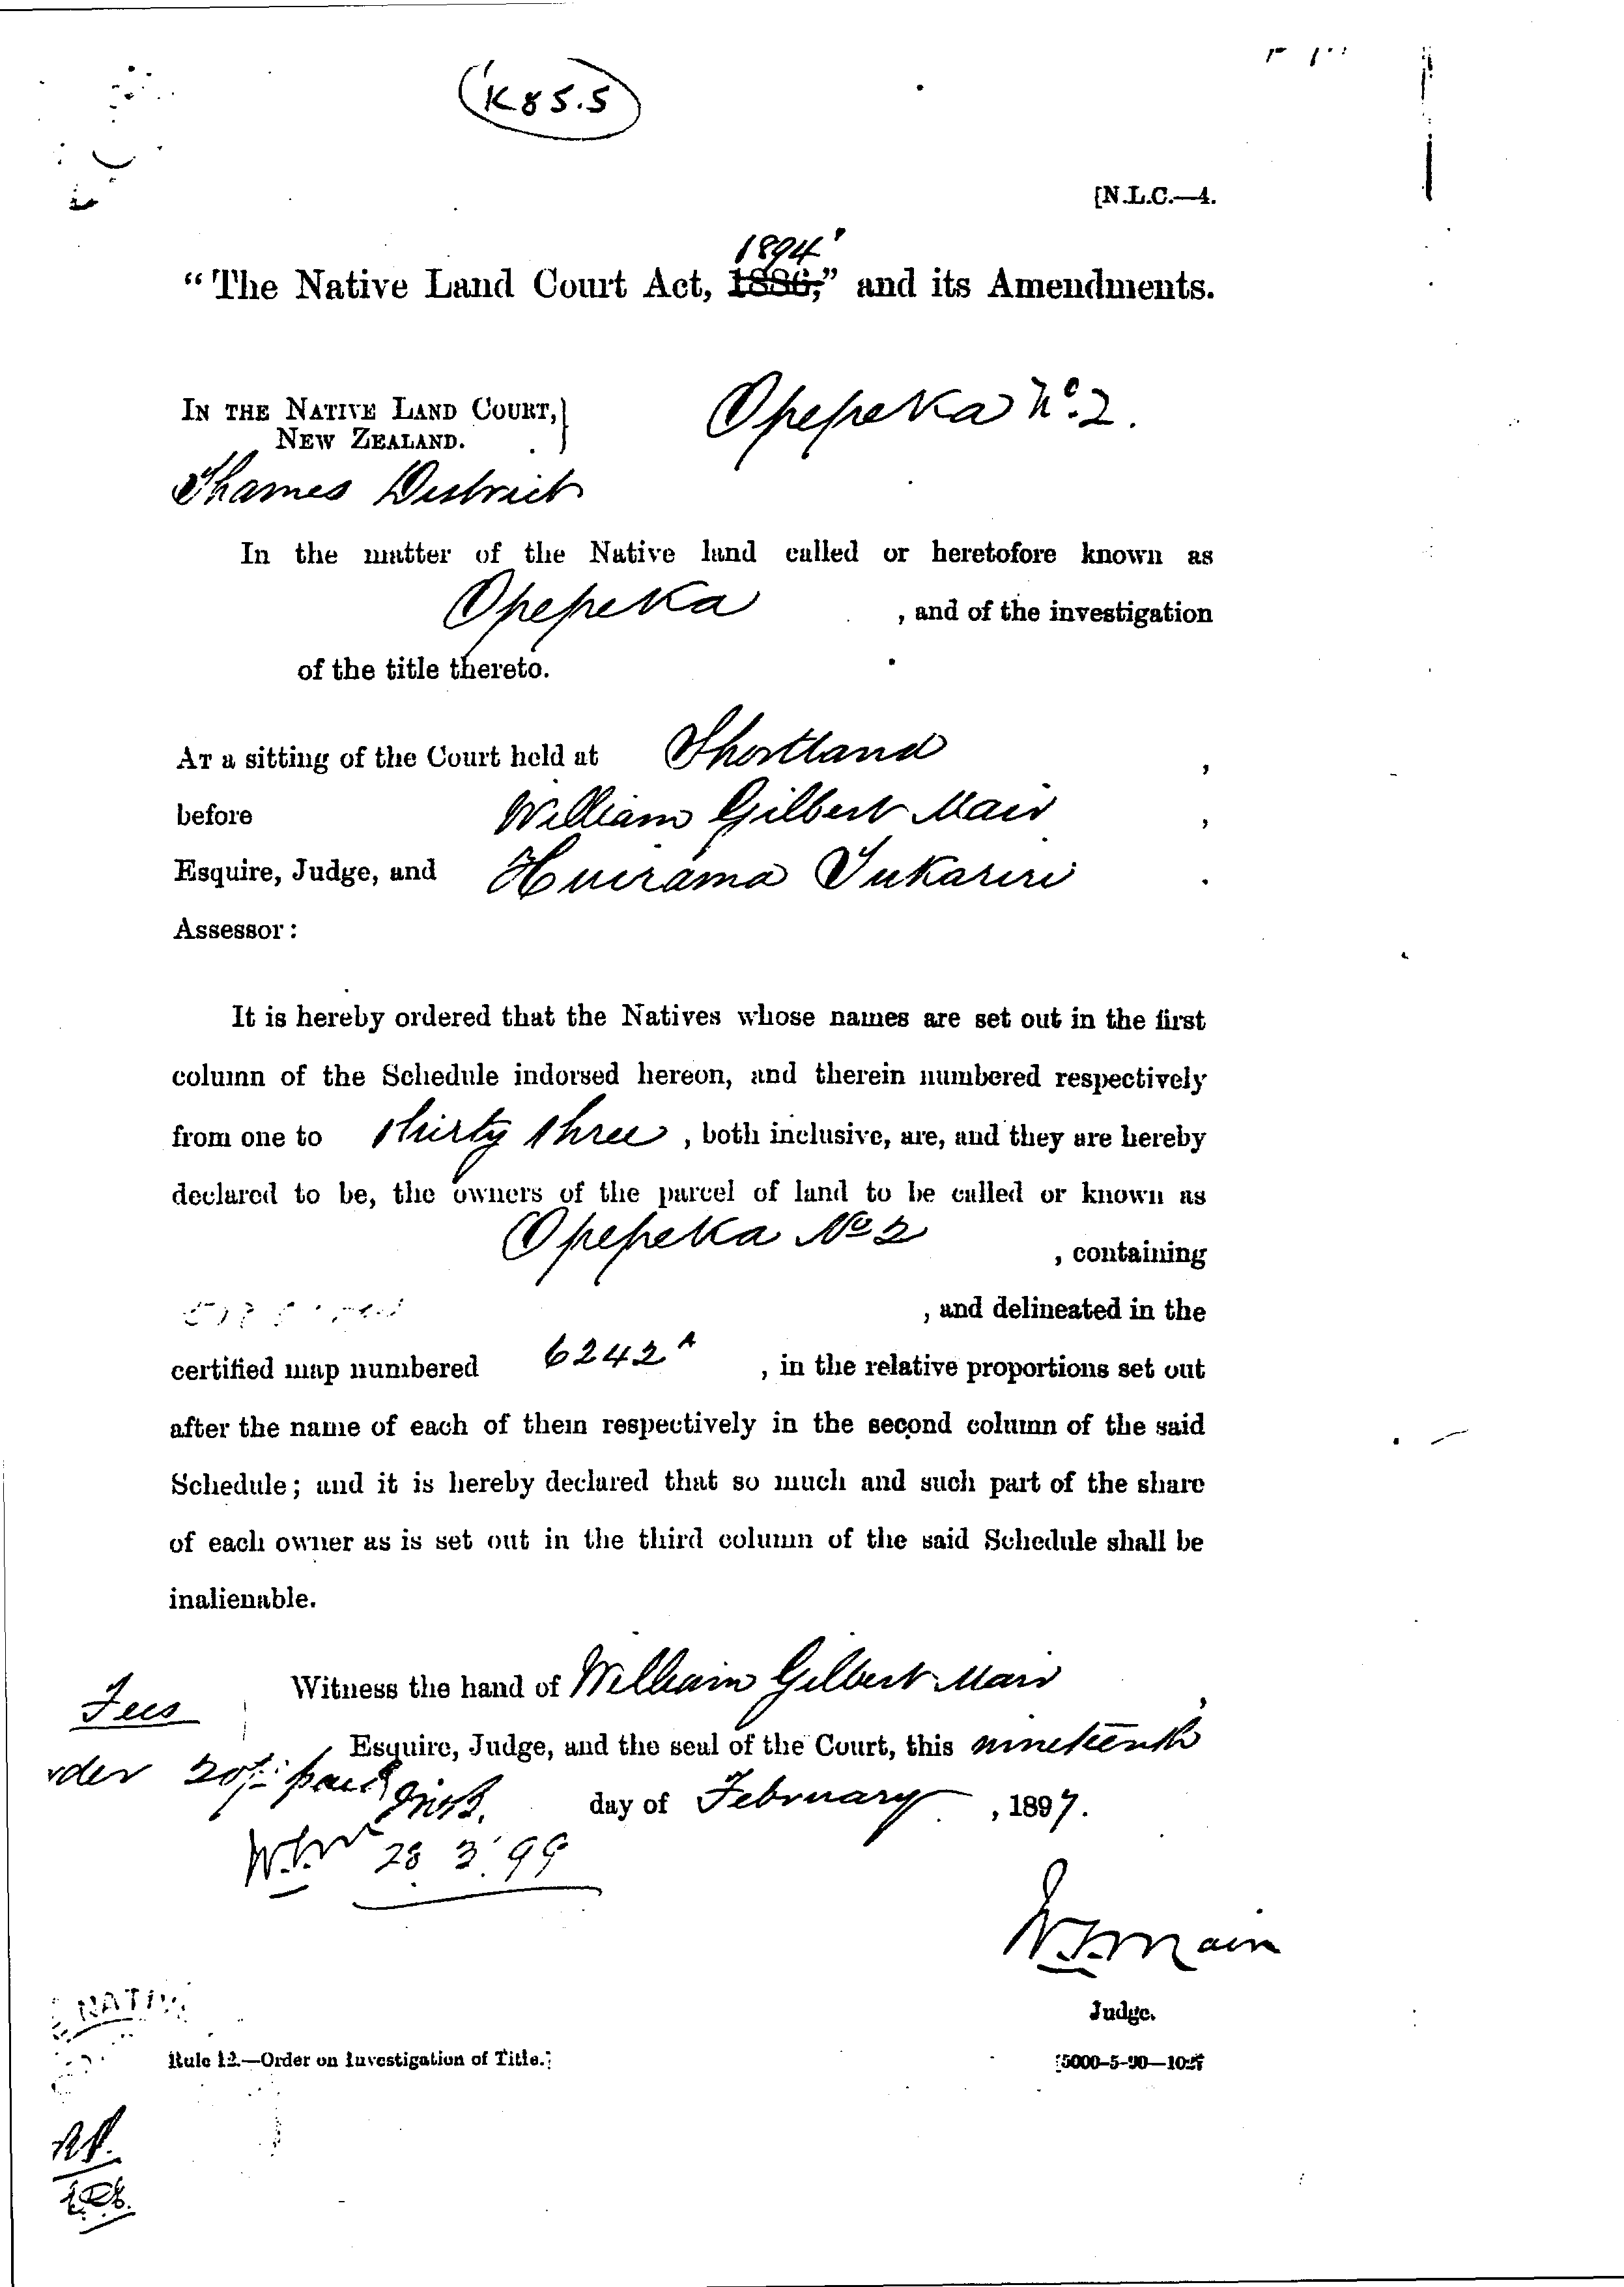 K85.5
[N.L.C.—4.
1894'
"The Native Land Court Act, 1886," and its Amendments.
IN THE NATIVE LAND COURT,
NEW ZEALAND.
Opepeka No. 2.
Thames District
In the matter of the Native land called or heretofore known as
Opepeka , and of the investigation
of the title thereto.
AT a sitting of the Court held at Shortland ,
before William Gilbert Mair ,
Esquire, Judge, and Huirama Tukariri .
Assessor:
It is hereby ordered that the Natives whose names are set out in the first
column of the Schedule indorsed hereon, and therein numbered respectively
from one to thirty three , both inclusive, are, and they are hereby
declared to be, the owners of the parcel of land to be called or known as
Opepeka No 2 , containing
, and delineated in the
certified map numbered 6242A , in the relative proportions set out
after the name of each of them respectively in the second column of the said
Schedule; and it is hereby declared that so much and such part of the share
of each owner as is set out in the third column of the said Schedule shall be
inalienable.
Witness the hand of William Gilbert Mair ,
Fees
Esquire, Judge, and the seal of the Court, this nineteenth
rder 20/- paid
day of February , 1897.
28.3.99
W.G. Mair
Judge.
NATIV
Rule 12.—Order on Investigation of Title.]
[5000-5-90—1027